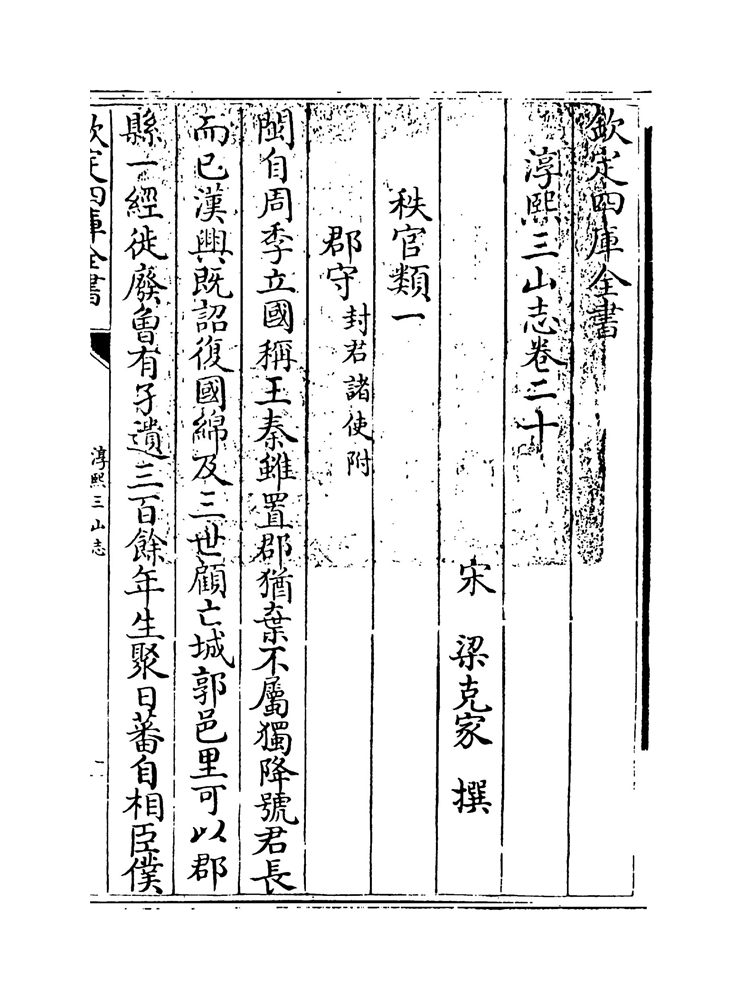 欽定四庫全書
淳熙三山志卷二十
宋 梁克家 撰
秩官類一
郡守 封君諸使附
閩自周季立國稱王秦雖置郡猶棄不屬獨降號君長
而已漢興既詔復國綿及三世顧亡城郭邑里可以郡
縣一經徙廢曾有孑遺三百餘年生聚日蕃自相臣僕
欽定四庫全書
淳熙三山志